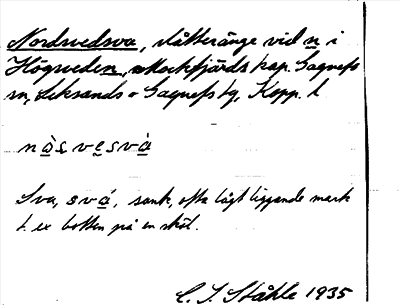 Nordsvedsva, slåtteränge vid n i
Högsveden, Mockfjärds kap. Gagnefs
sn, Leksands o Gagnefs tg, Kopp. l
Sva, svá, sank, ofta lågt liggande mark
t. ex botten på en skål.
C. I. Ståhle 1935